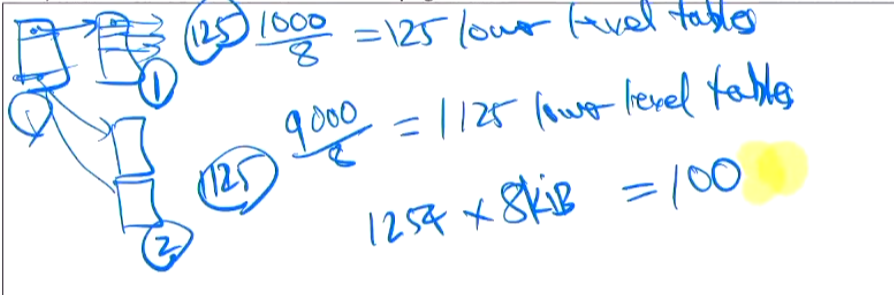 125 1000/8 = 125 lower level tables
1
9000/8 = 1125 lower level tables
1125
1254 x 8KiB = 100
2